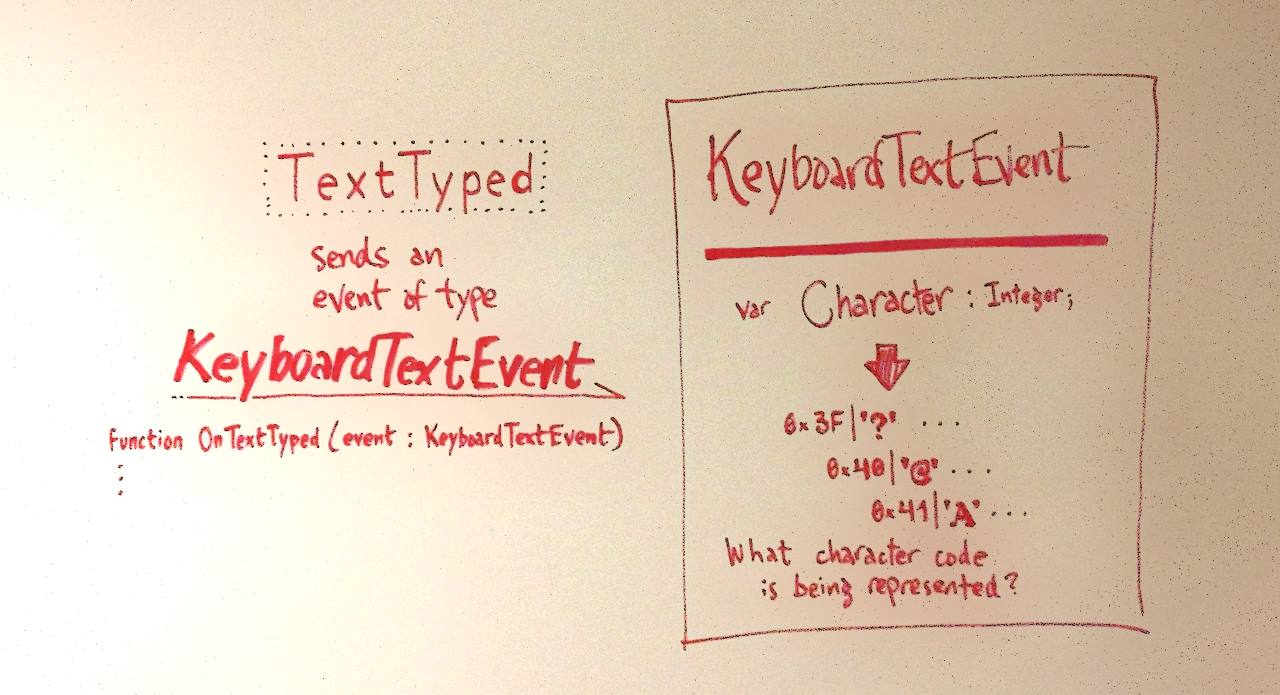 TextTyped
sends an
event of type
KeyboardTextEvent
function OnTextTyped (event : KeyboardTextEvent)
⋮
KeyboardTextEvent
var Character : Integer;
0x3F|'?' ...
0x40|'@' ...
0x41|'A' ...
What character code
is being represented?